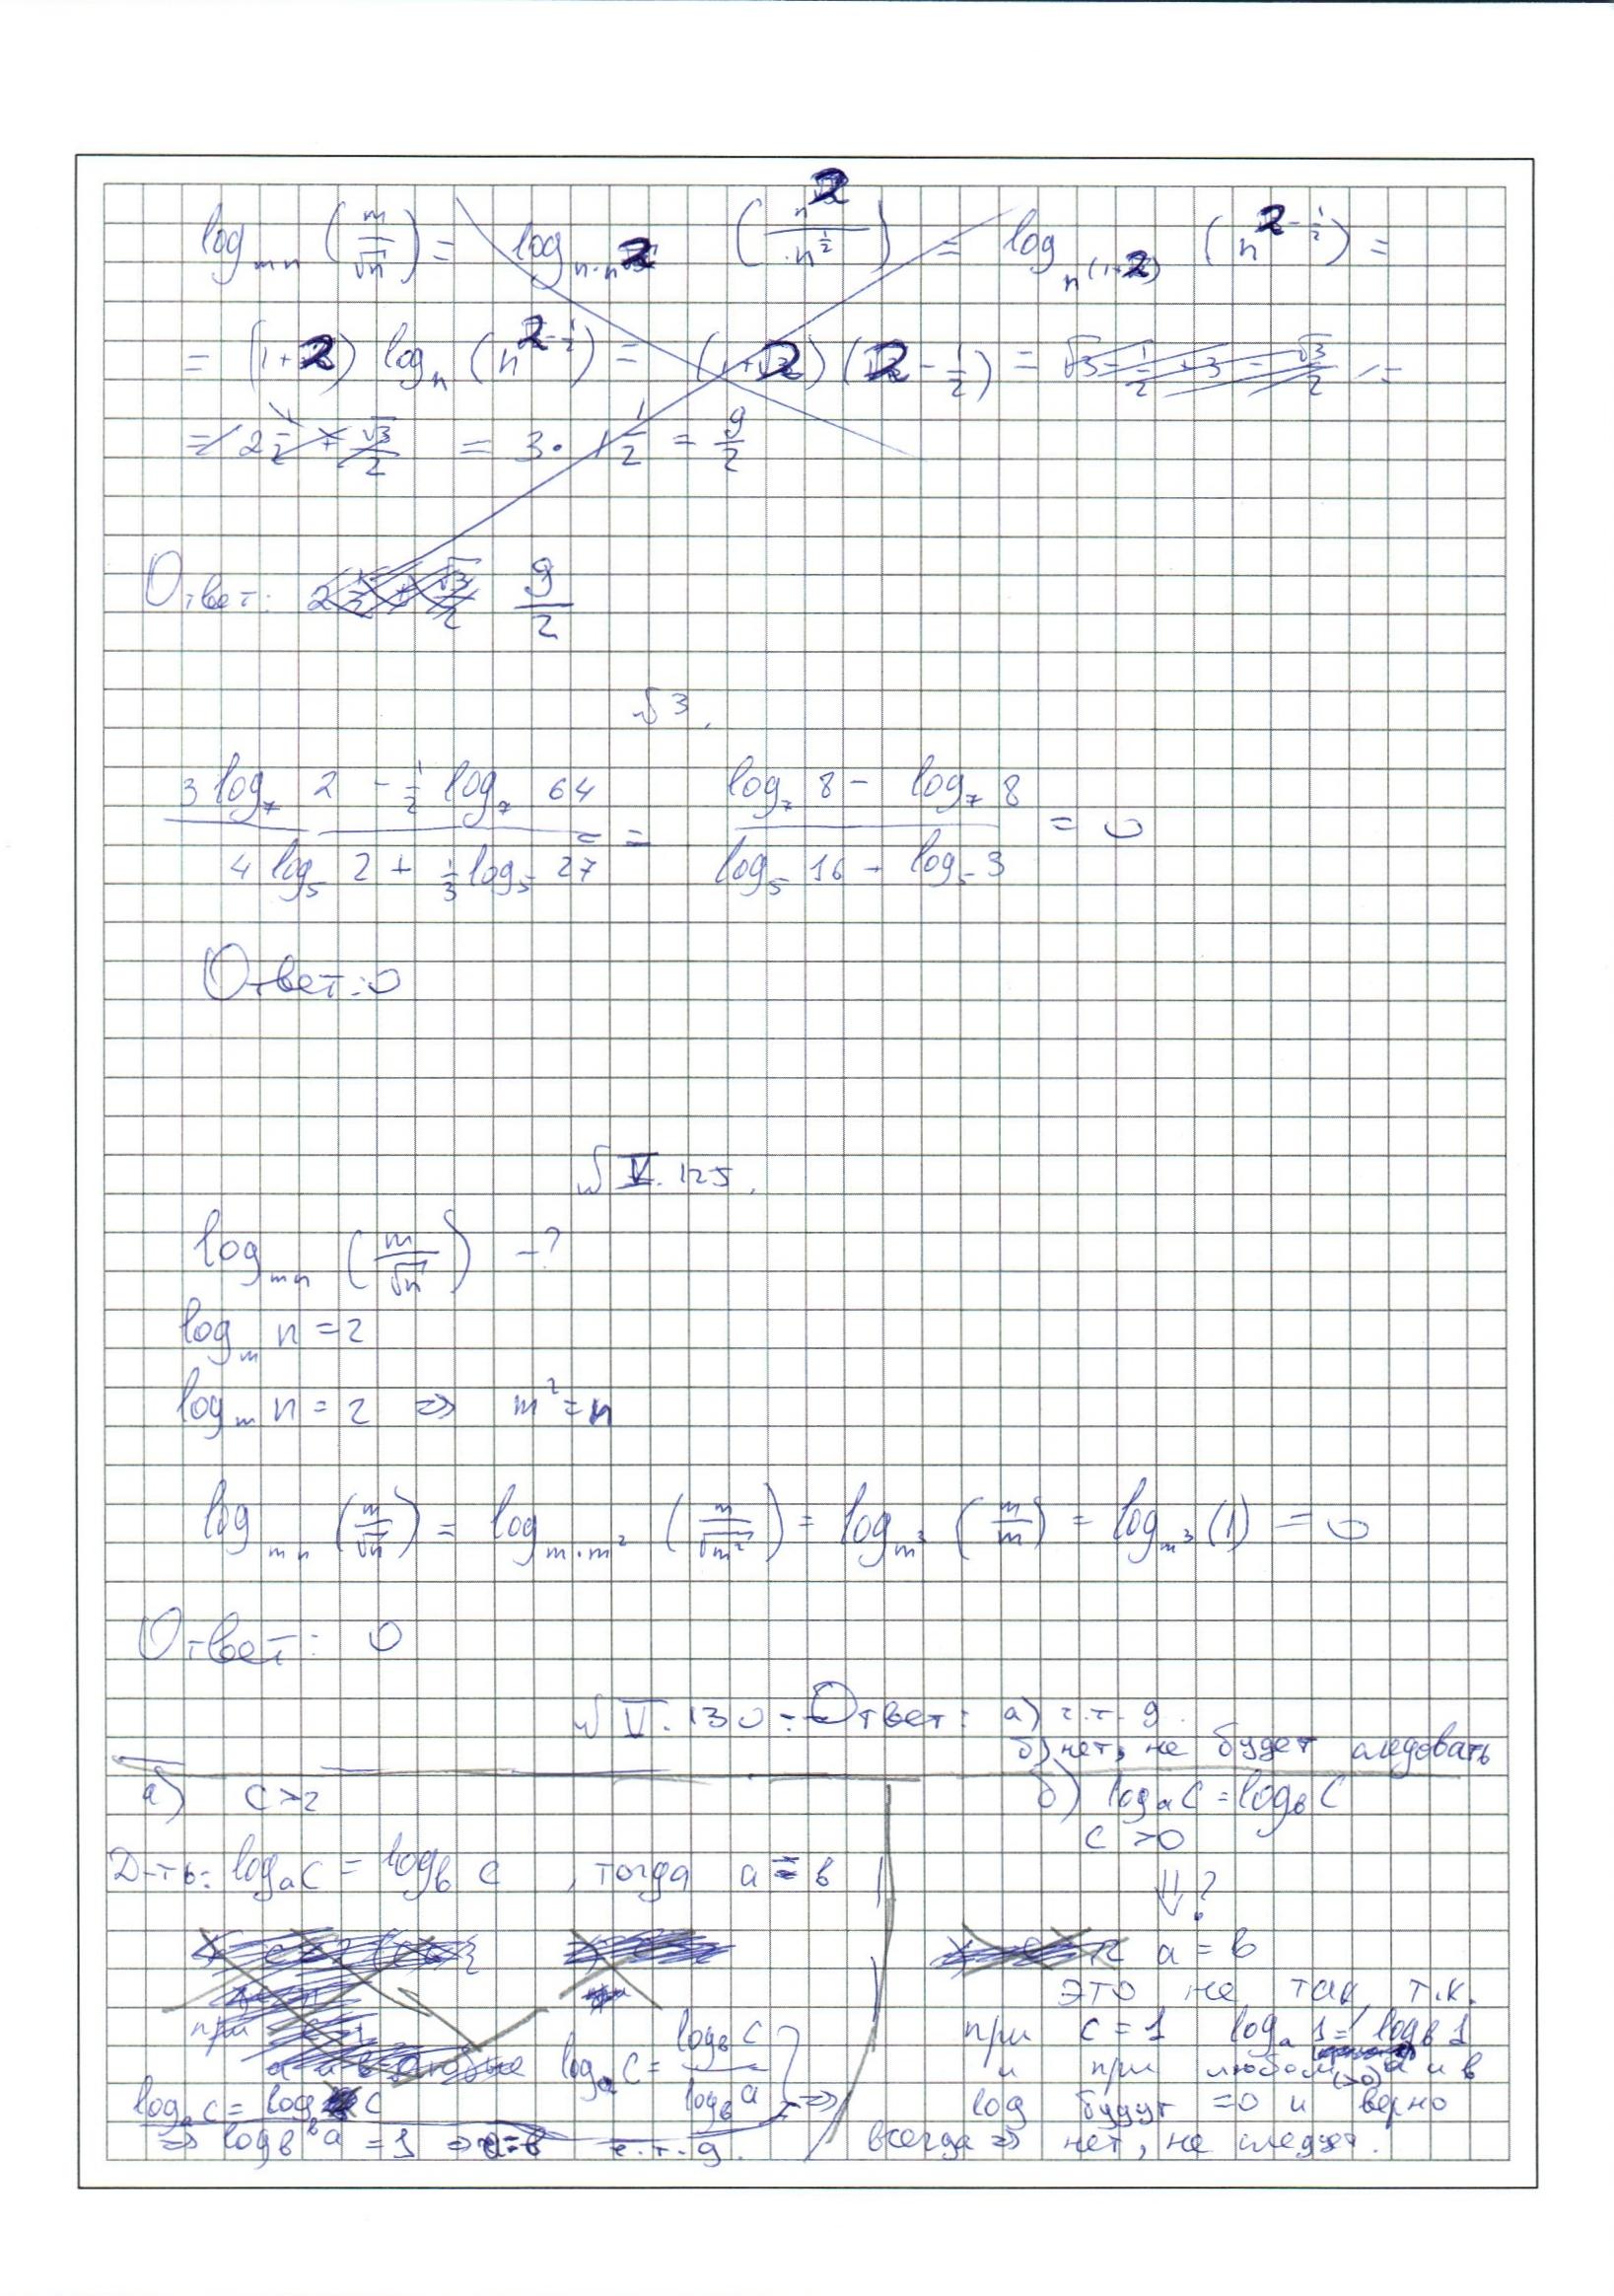 log_{mn} (m/√n) = log_{n·n^2} (n^2/n^{1/2}) = log_{n^{(1+2)}} (n^{2-1/2}) =
= (1+2) log_n (n^{2-1/2}) = (1+2)(2-1/2) =
= 3·1 1/2 = 9/2
Ответ: 9/2
№3.
(3 log_7 2 - 1/2 log_7 64)/(4 log_5 2 + 1/3 log_5 27) = (log_7 8 - log_7 8)/(log_5 16 + log_5 3) = 0
Ответ: 0
№ IV. 125.
log_{mn} (m/√n) -?
log_m n = 2
log_m n = 2 => m^2 = n
log_{mn} (m/√n) = log_{m·m^2} (m/√m^2) = log_{m^3} (m/m) = log_{m^3} (1) = 0
Ответ: 0
№ IV. 130. Ответ: а) ч.т.д.
б) нет, не будет следовать
а) c>2
Д-ть: log_a c = log_в c, тогда a = в
при
log_a c = log_в c / log_в a =>
log_a c = log_в c
=> log_в a = 1 => a=в ч.т.д.
б) log_a c = log_в c
c > 0
⇓?
a = в
это не так, т.к.
при c = 1 log_a 1 = log_в 1
и при любом (>0) a и в
log будут =0 и верно
всегда => нет, не следует.